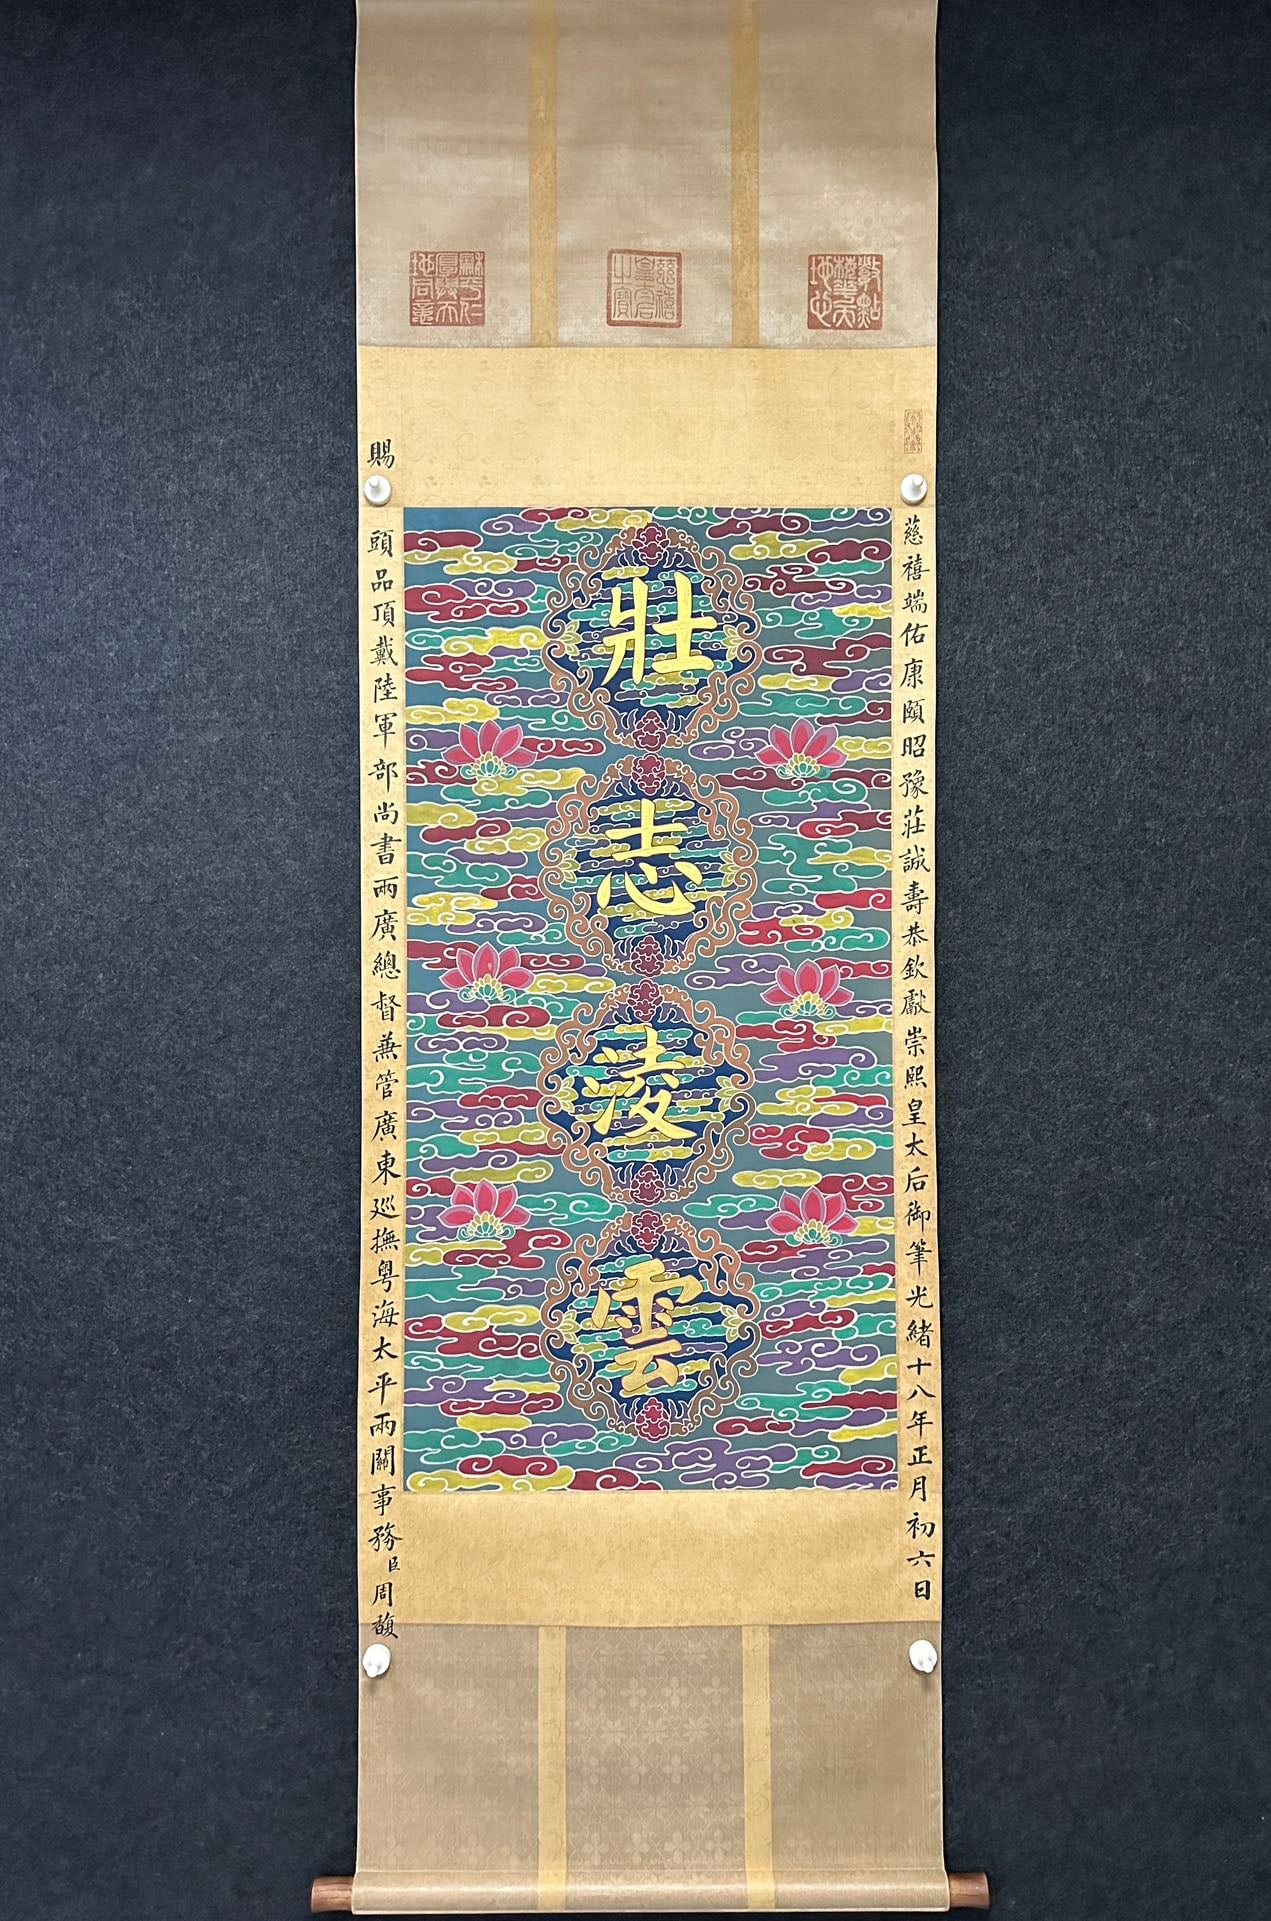 數點梅花天地心
慈禧皇太后之寶
和平仁厚與天地同意
慈禧端佑康頤昭豫莊誠壽恭欽獻崇熙皇太后御筆光緒十八年正月初六日
壯志凌雲
賜
頭品頂戴陸軍部尚書兩廣總督兼管廣東巡撫粵海太平兩關事務臣周馥